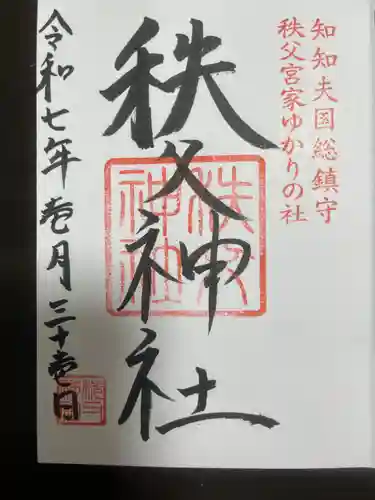 知知夫国総鎮守
秩父宮家ゆかりの社
秩父神社
秩父神社
令和七年壱月三十壱日